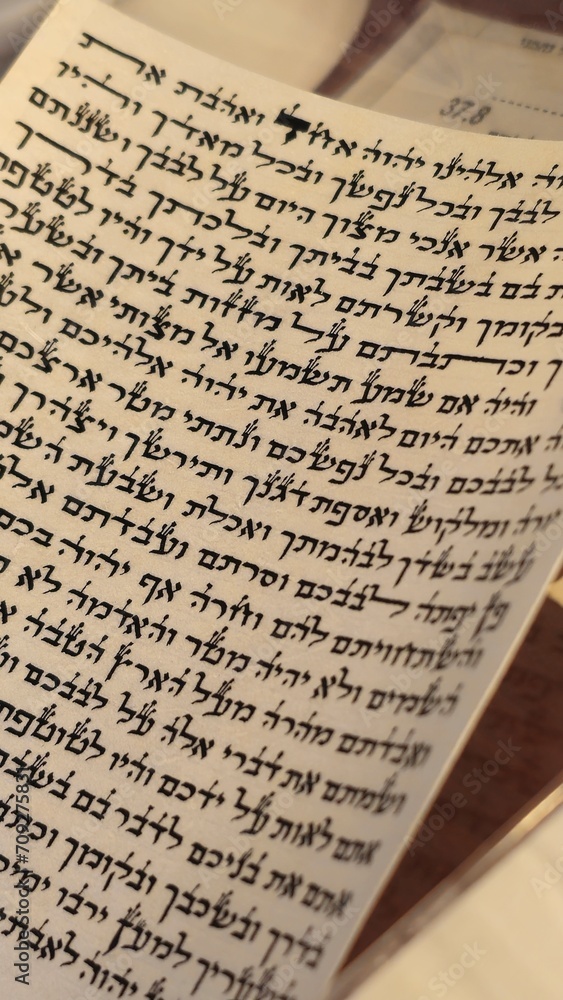 אלהינו יהוה אחד ואהבת את
לבבך ובכל נפשך ובכל מאדך והיו
אשר אנכי מצוך היום על לבבך ושננתם
בם בשבתך בביתך ובלכתך בדרך
ובקומך וקשרתם לאות על ידך והיו לטטפת
וכתבתם על מזזות ביתך
והיה אם שמע תשמעו אל מצותי אשר
אתכם היום לאהבה את יהוה אלהיכם
לבבכם ובכל נפשכם ונתתי מטר ארצכם
יורה ומלקוש ואספת דגנך ותירשך ויצהרך
עשב בשדך לבהמתך ואכלת ושבעת
פן יפתה לבבכם וסרתם ועבדתם
והשתחויתם להם וחרה אף יהוה בכם
השמים ולא יהיה מטר והאדמה לא
ואבדתם מהרה מעל הארץ הטבה
ושמתם את דברי אלה על לבבכם
אתם לאות על ידכם והיו לטוטפת
אתם את בניכם לדבר בם
בדרך ובשכבך ובקומך
ובשעריך למען ירבו
יהוה
37.8
Adobe Stock | #709275831